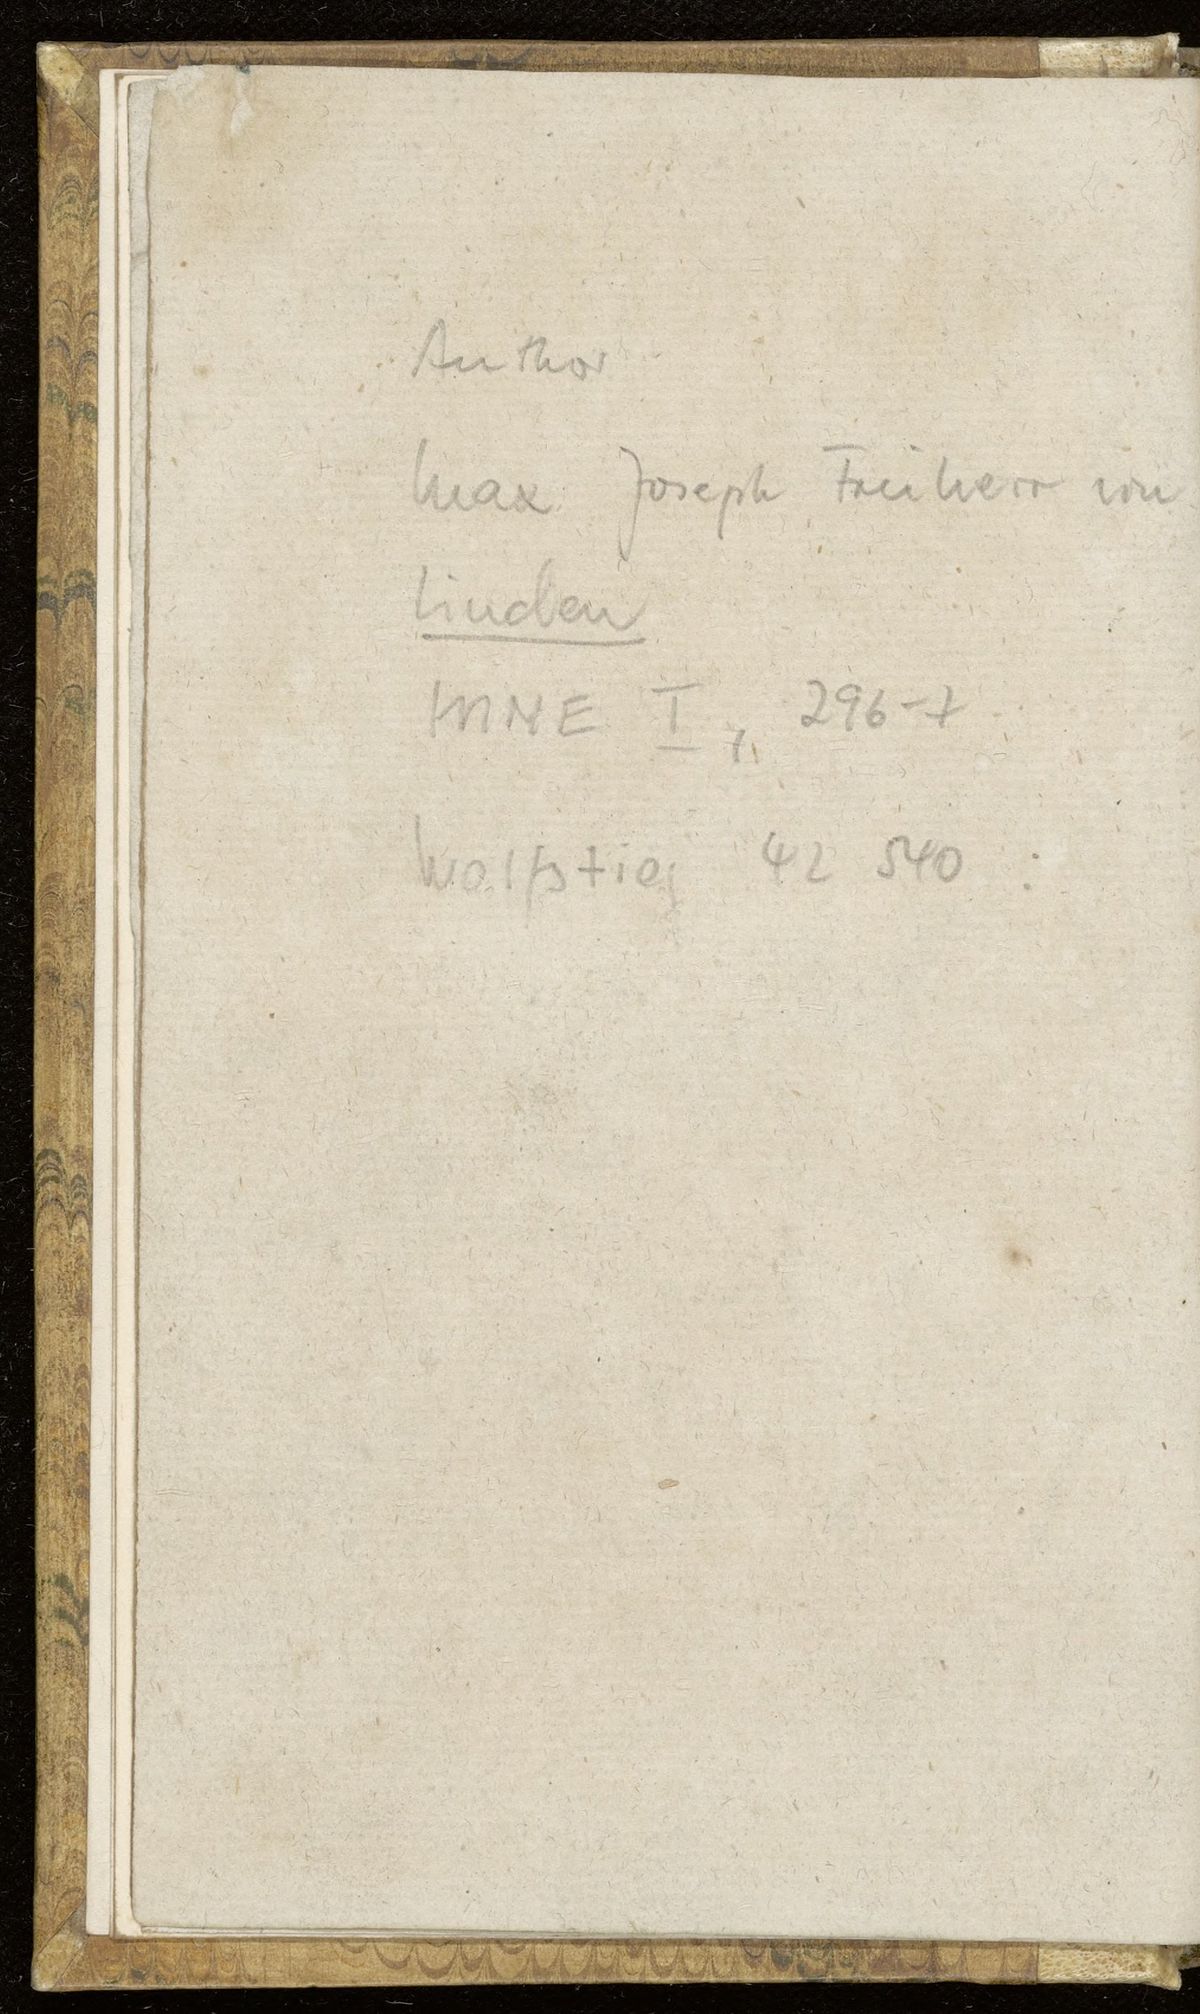 Author
Max Joseph Freiherr von
Linden
MNE I, 296-7
Wolfstieg 42 540